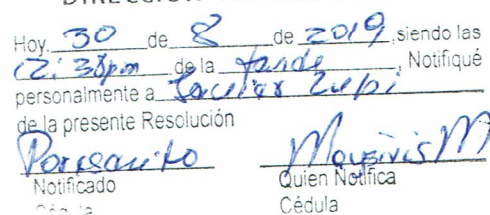 Hoy, 30 de 8 de 2019, siendo las
12:38pm de la tarde, Notifiqué
personalmente a
de la presente Resolución
Por escrito
Notificado Quien Notifica
Cédula Cédula